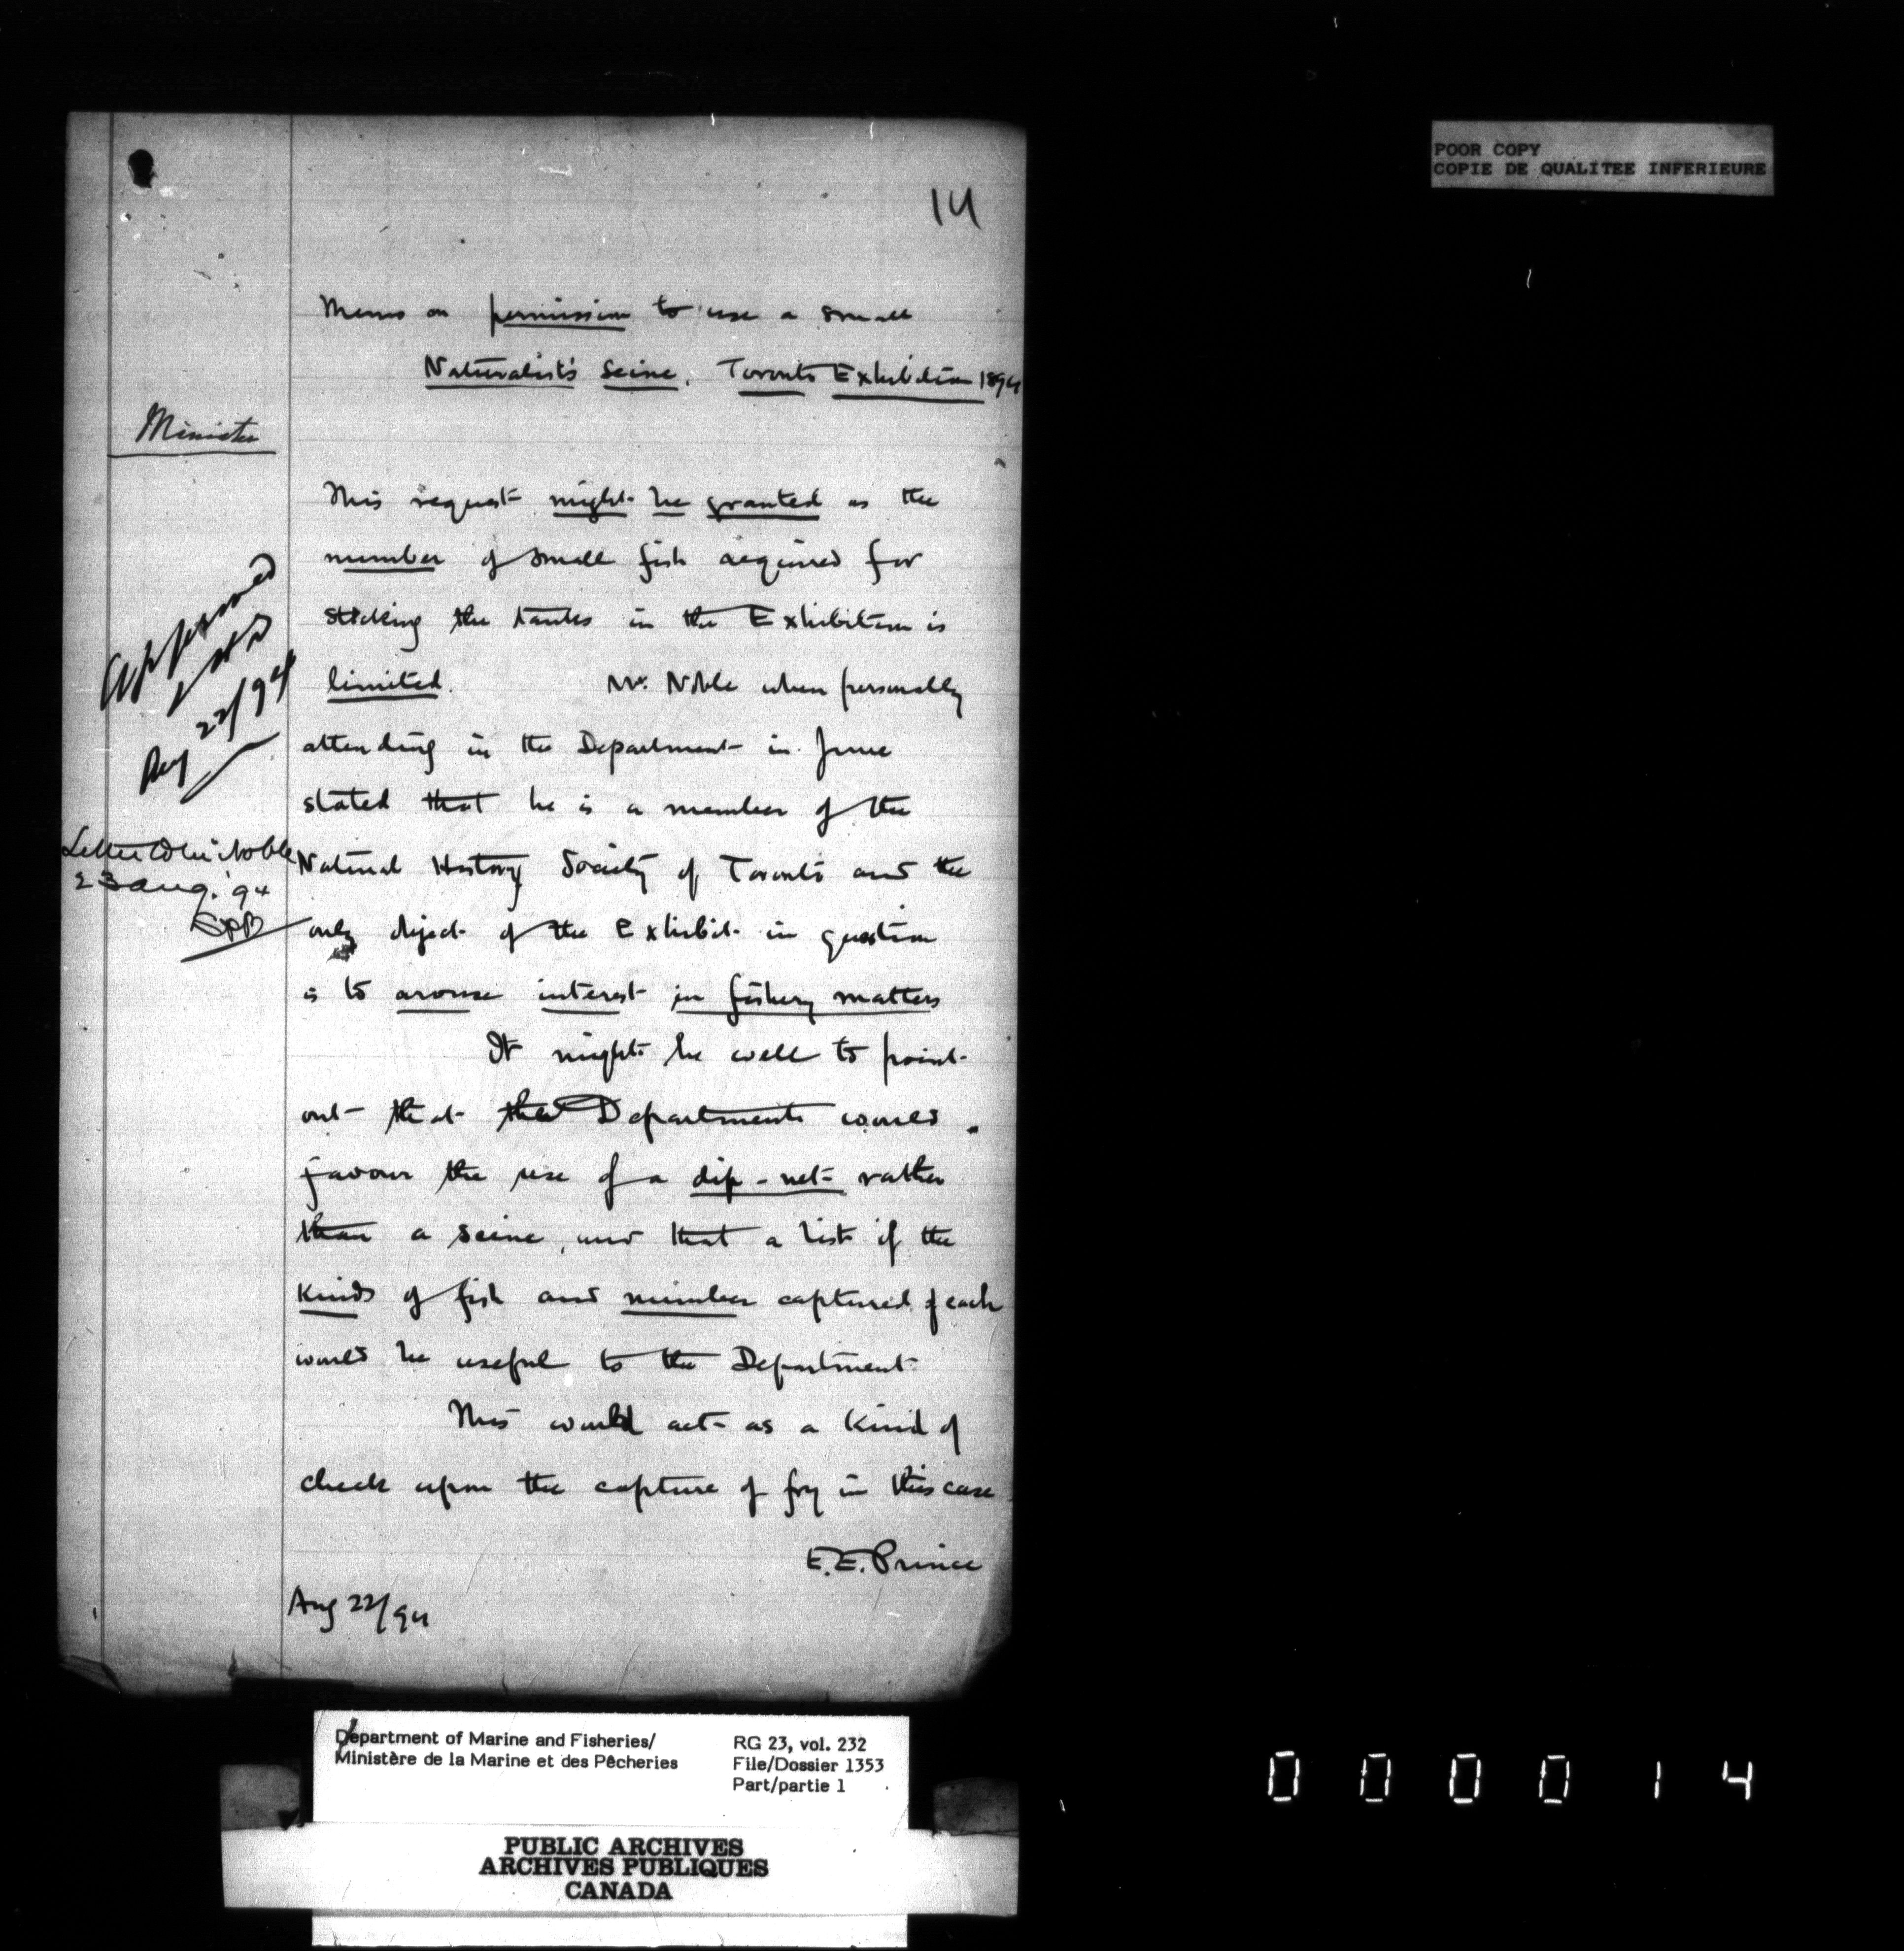 POOR COPY
COPIE DE QUALITEE INFERIEURE
14
Memo on permission to use a small
Naturalist's Seine. Toronto Exhibition 1894
Minister
This request might be granted as the
number of small fish required for
stocking the tanks in the Exhibition is
limited. Mr. Noble when personally
attending in the Department in June
stated that he is a member of the
Natural History Society of Toronto and the
only object of the Exhibit in question
is to arouse interest in fishery matters
It might be well to point
out that the Department would
favour the use of a dip-net rather
than a seine, and that a list if the
kinds of fish and number captured of each
would be useful to the Department
This would act as a kind of
check upon the capture of fry in this case
E. E. Prince
Aug 22/94
Approved
Aug 22/94
Letter Noble
23 Aug. '94
Department of Marine and Fisheries/
Ministère de la Marine et des Pêcheries
RG 23, vol. 232
File/Dossier 1353
Part/partie 1
PUBLIC ARCHIVES
ARCHIVES PUBLIQUES
CANADA
000014